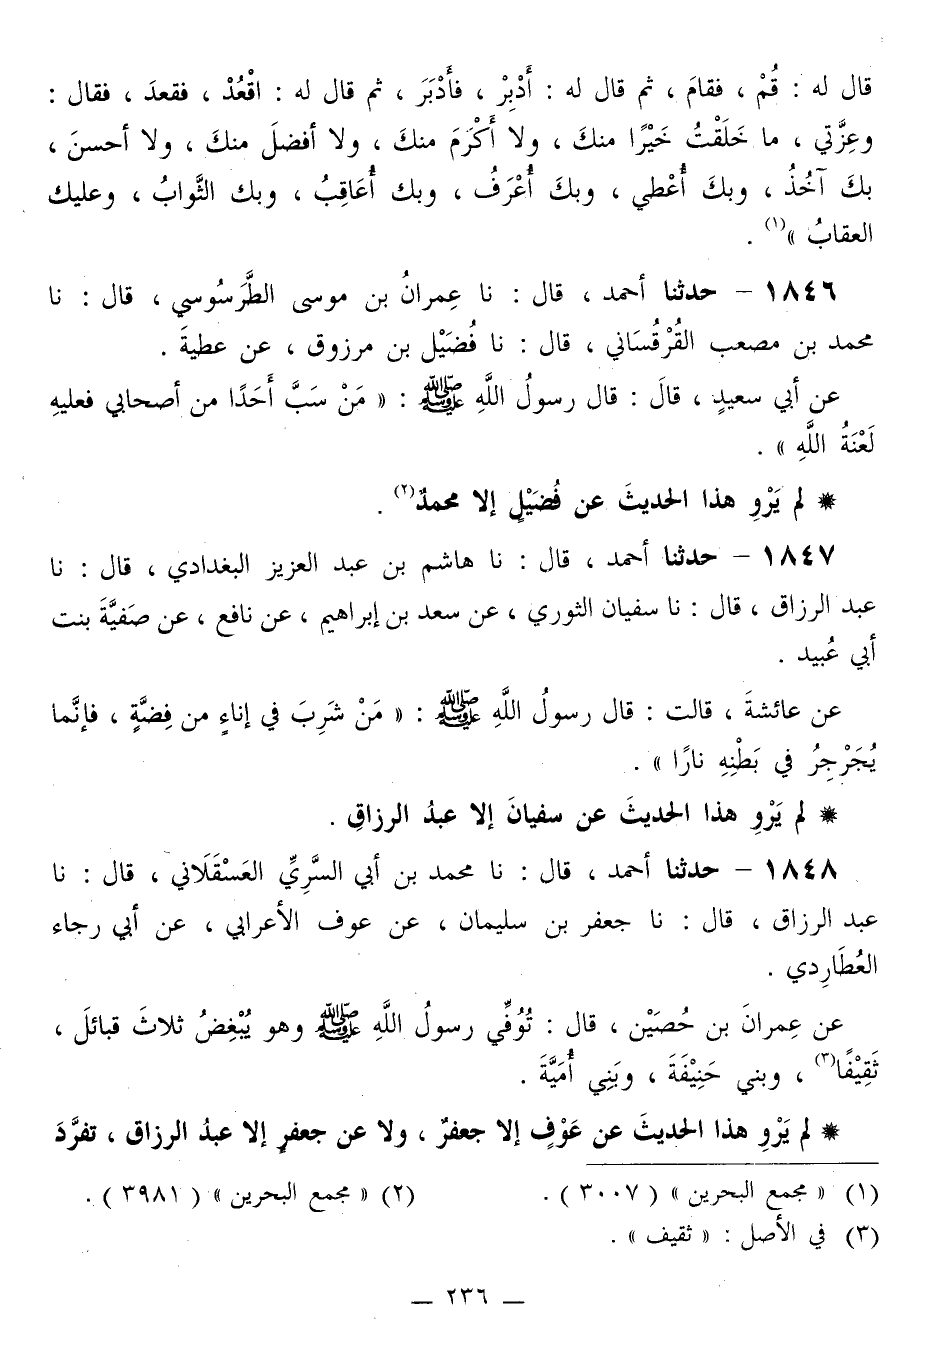 قال له : قُمْ ، فقامَ ، ثم قال له : أَدْبِرْ ، فأَدْبَرَ ، ثم قال له : اقْعُدْ ، فقعدَ ، فقال :
وعِزَّتي ، ما خَلَقْتُ خَيْرًا منكَ ، ولا أَكْرَمَ منكَ ، ولا أفضلَ منكَ ، ولا أحسنَ ،
بكَ آخُذُ ، وبكَ أُعْطي ، وبكَ أُعْرَفُ ، وبك أُعَاقِبُ ، وبك الثَّوابُ ، وعليك
العقابُ »(١) .
١٨٤٦ – حدثنا أحمد ، قال : نا عِمرانُ بن موسى الطَّرَسُوسي ، قال : نا
محمد بن مصعب القُرْقُسَاني ، قال : نا فُضَيْل بن مرزوق ، عن عطيةَ .
عن أبي سعيدٍ ، قالَ : قال رسولُ اللَّهِ ﷺ : « مَنْ سَبَّ أَحَدًا من أصحابي فعليهِ
لَعْنَةُ اللَّهِ » .
* لم يَرْوِ هذا الحديثَ عن فُضَيْلٍ إلا محمدٌ(٢) .
١٨٤٧ – حدثنا أحمد ، قال : نا هاشم بن عبد العزيز البغدادي ، قال : نا
عبد الرزاق ، قال : نا سفيان الثوري ، عن سعد بن إبراهيم ، عن نافع ، عن صَفيَّةَ بنت
أبي عُبيد .
عن عائشةَ ، قالت : قال رسولُ اللَّهِ ﷺ : « مَنْ شَرِبَ في إناءٍ من فِضَّةٍ ، فإنَّما
يُجَرْجِرُ في بَطْنِهِ نارًا » .
* لم يَرْوِ هذا الحديثَ عن سفيانَ إلا عبدُ الرزاقِ .
١٨٤٨ – حدثنا أحمد ، قال : نا محمد بن أبي السَّرِيِّ العَسْقَلَاني ، قال : نا
عبد الرزاق ، قال : نا جعفر بن سليمان ، عن عوف الأعرابي ، عن أبي رجاء
العُطَارِدي .
عن عِمرانَ بن حُصَيْن ، قال : تُوُفِّي رسولُ اللَّهِ ﷺ وهو يُبْغِضُ ثلاثَ قبائلَ ،
ثَقِيْفًا(٣) ، وبني حَنِيْفَةَ ، وبَنِي أُمَيَّةَ .
* لم يَرْوِ هذا الحديثَ عن عَوْفٍ إلا جعفرٌ ، ولا عن جعفرٍ إلا عبدُ الرزاق ، تفرَّدَ
(١) « مجمع البحرين » ( ٣٠٠٧ ) . (٢) « مجمع البحرين » ( ٣٩٨١ ) .
(٣) في الأصل : « ثقيف » .
– ٢٣٦ –